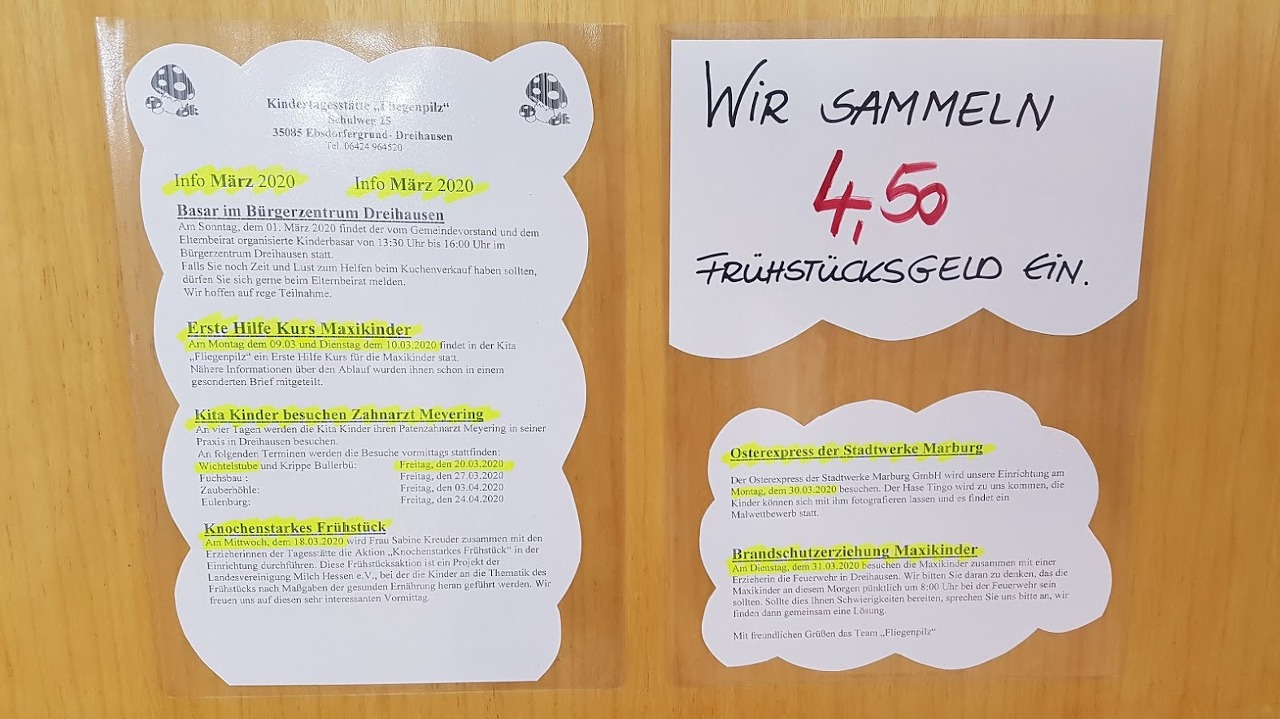 Kindertagesstätte „Fliegenpilz“
Schulweg 25
35085 Ebsdorfergrund- Dreihausen
Tel. 06424 964520
Info März 2020 Info März 2020
Basar im Bürgerzentrum Dreihausen
Am Sonntag, dem 01. März 2020 findet der vom Gemeindevorstand und dem
Elternbeirat organisierte Kinderbasar von 13:30 Uhr bis 16:00 Uhr im
Bürgerzentrum Dreihausen statt.
Falls Sie noch Zeit und Lust zum Helfen beim Kuchenverkauf haben sollten,
dürfen Sie sich gerne beim Elternbeirat melden.
Wir hoffen auf rege Teilnahme.
Erste Hilfe Kurs Maxikinder
Am Montag dem 09.03 und Dienstag dem 10.03.2020 findet in der Kita
„Fliegenpilz“ ein Erste Hilfe Kurs für die Maxikinder statt.
Nähere Informationen über den Ablauf wurden ihnen schon in einem
gesonderten Brief mitgeteilt.
Kita Kinder besuchen Zahnarzt Meyering
An vier Tagen werden die Kita Kinder ihren Patenzahnarzt Meyering in seiner
Praxis in Dreihausen besuchen.
An folgenden Terminen werden die Besuche vormittags stattfinden:
Wichtelstube und Krippe Bullerbü: Freitag, den 20.03.2020
Fuchsbau : Freitag, den 27.03.2020
Zauberhöhle: Freitag, den 03.04.2020
Eulenburg: Freitag, den 24.04.2020
Knochenstarkes Frühstück
Am Mittwoch, dem 18.03.2020 wird Frau Sabine Kreuder zusammen mit den
Erzieherinnen der Tagesstätte die Aktion „Knochenstarkes Frühstück“ in der
Einrichtung durchführen. Diese Frühstücksaktion ist ein Projekt der
Landesvereinigung Milch Hessen e.V., bei der die Kinder an die Thematik des
Frühstücks nach Maßgaben der gesunden Ernährung heran geführt werden. Wir
freuen uns auf diesen sehr interessanten Vormittag.
WIR SAMMELN
4,50
FRÜHSTÜCKSGELD EIN.
Osterexpress der Stadtwerke Marburg
Der Osterexpress der Stadtwerke Marburg GmbH wird unsere Einrichtung am
Montag, dem 30.03.2020 besuchen. Der Hase Tingo wird zu uns kommen, die
Kinder können sich mit ihm fotografieren lassen und es findet ein
Malwettbewerb statt.
Brandschutzerziehung Maxikinder
Am Dienstag, dem 31.03.2020 besuchen die Maxikinder zusammen mit einer
Erzieherin die Feuerwehr in Dreihausen. Wir bitten Sie daran zu denken, das die
Maxikinder an diesem Morgen pünktlich um 8:00 Uhr bei der Feuerwehr sein
sollten. Sollte dies Ihnen Schwierigkeiten bereiten, sprechen Sie uns bitte an, wir
finden dann gemeinsam eine Lösung.
Mit freundlichen Grüßen das Team „Fliegenpilz“